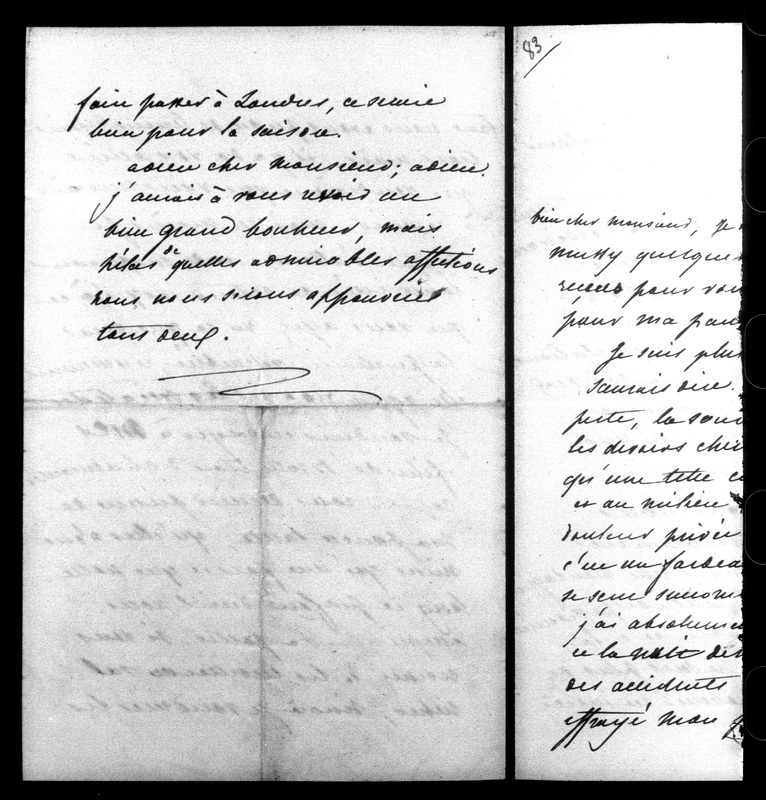 faire passer à Londres, ce serait
bien pour la saison.
adieu cher monsieur, adieu.
j'aurais à vous revoir un
bien grand bonheur, mais
hélas de quelles admirables affections
nous nous serons appauvris
tous deux.
83
bien cher monsieur, je
quelques
pour vous
pour ma pau
Je suis plus
saurais dire.
perte, la
les devoirs cher
qu'une telle
et au milieu
douleur privée
c'est un fardea
se sent
j'ai absolumen
et la nuit der
des accidents
effrayé mon